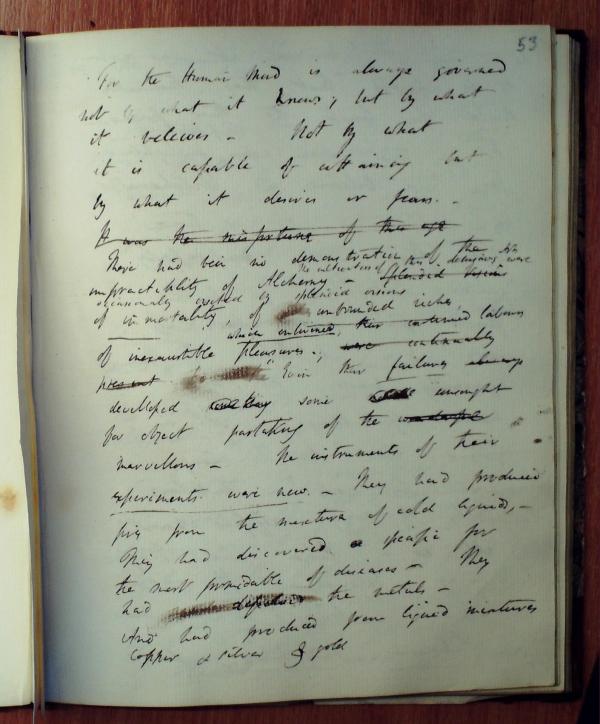 53
For the Human Mind is always governed
not by what it knows; but by what
it beleives - Not by what
it is capable of attaining but
by what it desires or fears. -
It was the misfortune of this age
There had been no demonstration of the
impracticability of Alchemy - the cultivators of this delusion were
occasionally excited by splendid visions
of immortality, of unbounded riches
of inexaustible pleasures. which enlivened their labours
were continually
present Even their failures always
developed some unsought
for object partaking of the
marvellous - The instruments of their
experiments were new. - They had produced
fire from the mixture of cold liquids, -
They had discovered a specific for
the most formidable of diseases - They
had the metals -
And had produced from liquid mixtures
copper & silver & gold